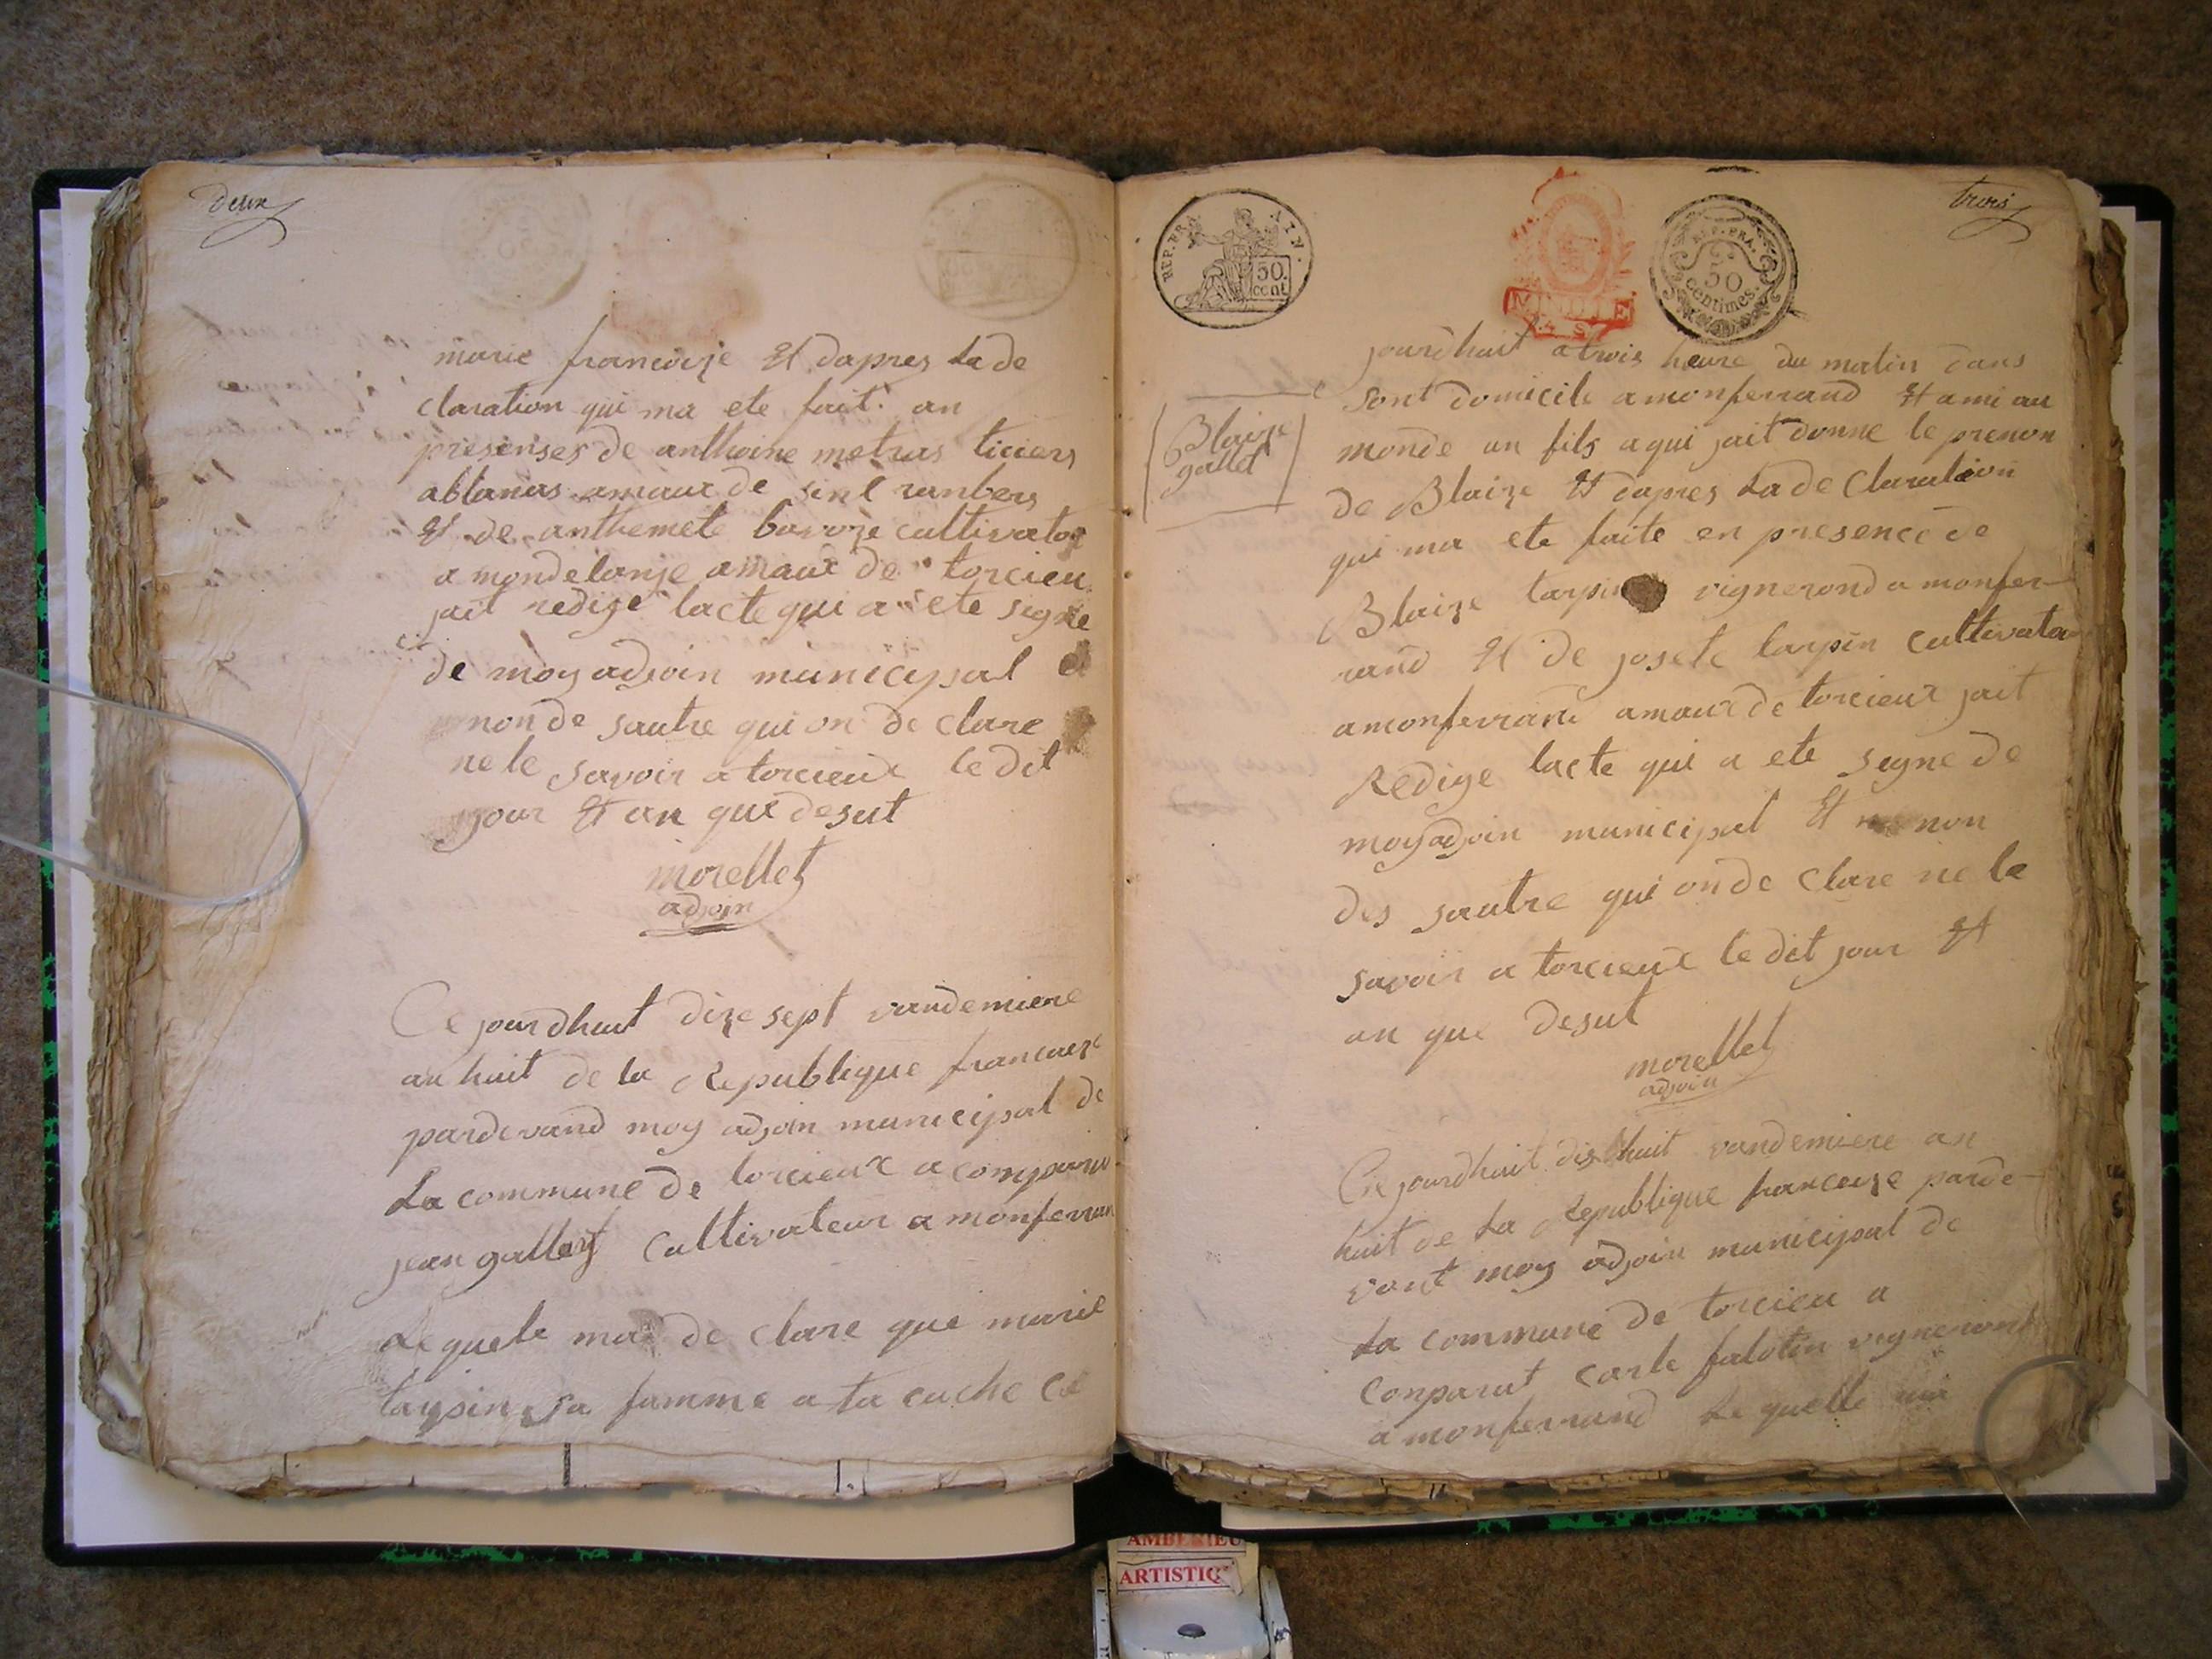 deux
marie francoize Et dapres La de
claration qui ma ete fait an
presenses de anthoine metras ticiers
ablanas amaux de sint ranbers
Et de anthemete bavoze cultivator
a mondelanje amaux de torcieu
jait redige lacte qui a ete signe
de moy adjoin municipal et
non de sautre qui on de clare
ne le savoir a torcieux le dit
jour Et an que desut
morellet
adjoin
Ce jourdhuit dize sept vandemiere
an huit de la Republique francaize
pardevand moy adjoin municipal de
La commune de torcieux a comparu
jean gallet Cultivateur a monferran
Lequele ma de clare que marie
tarpin sa famme a ta cuche ce
trois
REP. FRA. AIN.
50. cent
MINUTE
REP. FRA.
50
centimes.
jourdhuit a trois heure du matin dans
sont domicile a monferrand Et ami au
monde un fils a qui jait donne le prenon
Blaize
gallet
de Blaize Et dapres La de Claration
qui ma ete faite en presence de
Blaize tarpin vignerond a monfer-
rand Et de josete tarpin Cultivata
a monferrand amaux de torcieux jait
Redige lacte qui a ete segne de
moy adjoin municipal Et non
des sautre qui on de Clare ne le
savoir a torcieux le dit jour Et
an que desut
morellet
adjoin
Ce jourdhuit dis huit vandemiere an
huit de La Republique francaize parde-
vant moy adjoin municipal de
La commune de torcieu a
Conparut Carle falotin vigneront
a monferrand Le quelle ma
AMBERIEU
ARTISTIQ